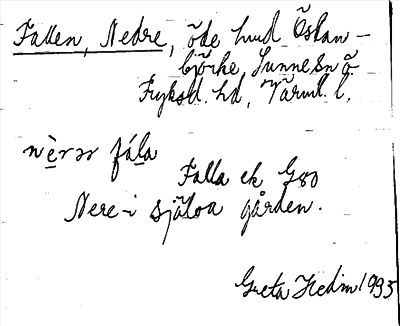 Fallen, Nedre, öde hmd Östan-
björke Sunne sn ö.
Fryksd. hd, Värml. l.
nèrər fála
Falla ek G80
Nere-i själva gården.
Greta Hedin 1935